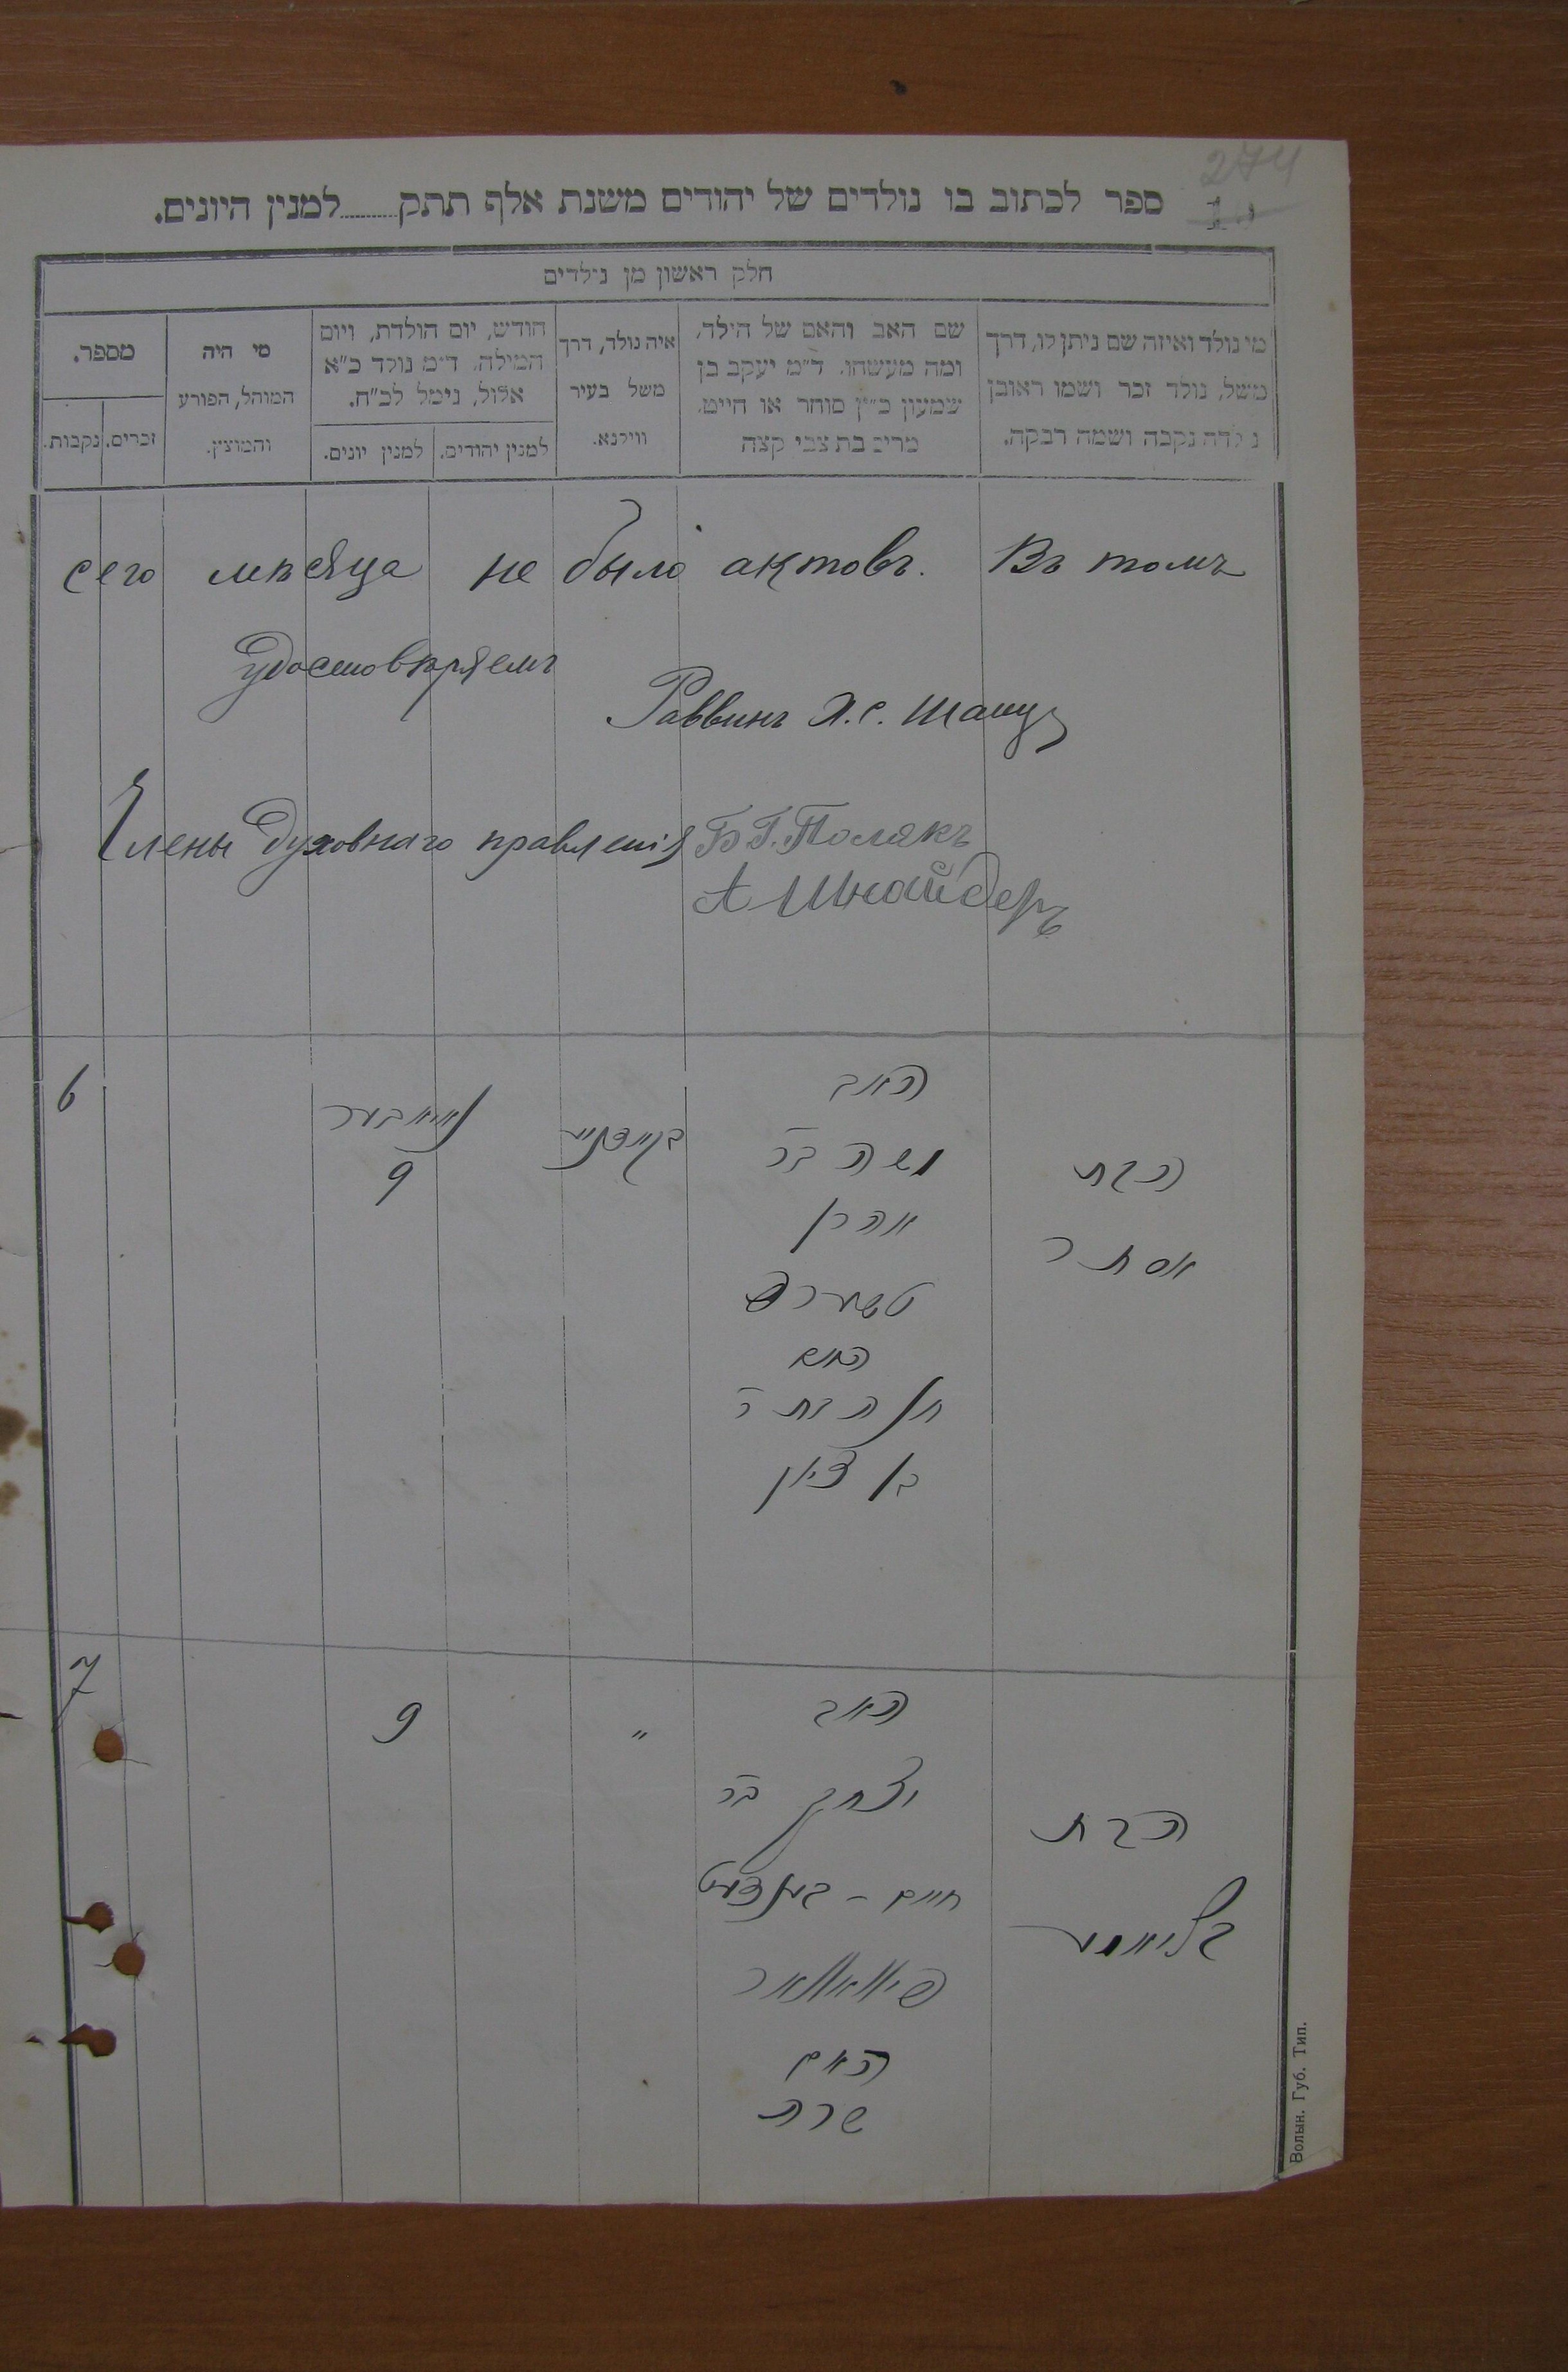 274
1
ספר לכתוב בו נולדים של יהודים משנת אלף תתק......למנין היונים.
חלק ראשון מן נולדים
מי נולד ואיזה שם ניתן לו, דרך משל, נולד זכר ושמו ראובן נולדה נקבה ושמה רבקה.
שם האב והאם של הילד, ומה מעשהו. ד״מ יעקב בן שמעון כ״ץ סוחר או חייט. מרים בת צבי קצה
איה נולד, דרך משל בעיר ווילנא.
חודש, יום הולדת, ויום המילה. ד״מ נולד כ״א אלול, נימל לכ״ח.
למנין יהודים.
למנין יונים.
מי היה המוהל, הפורע והמוצץ.
מספר.
זכרים.
נקבות.
сего мѣсяца не было актовъ. Въ томъ
удостовѣряемъ
Раввинъ Я.С. Шапу
Члены Духовнаго правленія Б Г. Полякъ
А Шнайдеръ
6
נאיאבער
9
האב
משה בר
אהרן
האם
בן ציון
הבת
אסתר
7
9
"
האב
יצחק בר
חיים –
האם
שרה
הבת
בליומע
Волын. Губ. Тип.